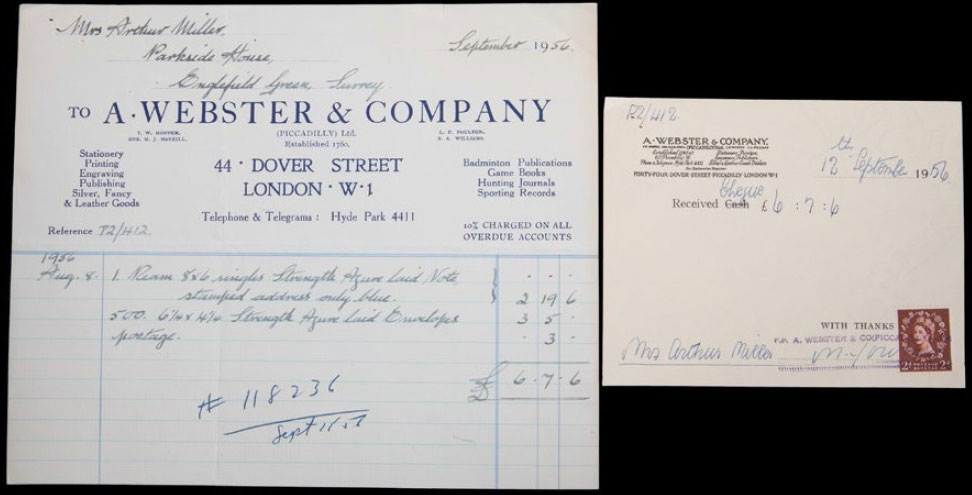 Mrs Arthur Miller,
September 1956
Parkside House,
Englefield Green, Surrey
TO A·WEBSTER & COMPANY
(PICCADILLY) Ltd.
Established 1780.
T. W. HOPPER,
L. C. POULTON,
44 · DOVER STREET
LONDON · W·1
Stationery
Printing
Engraving
Publishing
Silver, Fancy
& Leather Goods
Badminton Publications
Game Books
Hunting Journals
Sporting Records
Telephone & Telegrams : Hyde Park 4411
Reference P2/412
10% CHARGED ON ALL
OVERDUE ACCOUNTS
1956
Aug. 8. 1. Ream 8x6 singles Strength Azure laid Note
stamped address only blue. 2 19 6
500. Strength Azure laid Envelopes 3 5 ·
postage. · 3 ·
£ 6·7·6
# 118236
Sept
P2/412
A·WEBSTER & COMPANY
FORTY-FOUR DOVER STREET PICCADILLY LONDON W·1
12th September 1956
cheque
Received Cash £6 : 7 : 6
WITH THANKS
P.P. A. WEBSTER & CO
Mrs Arthur Miller